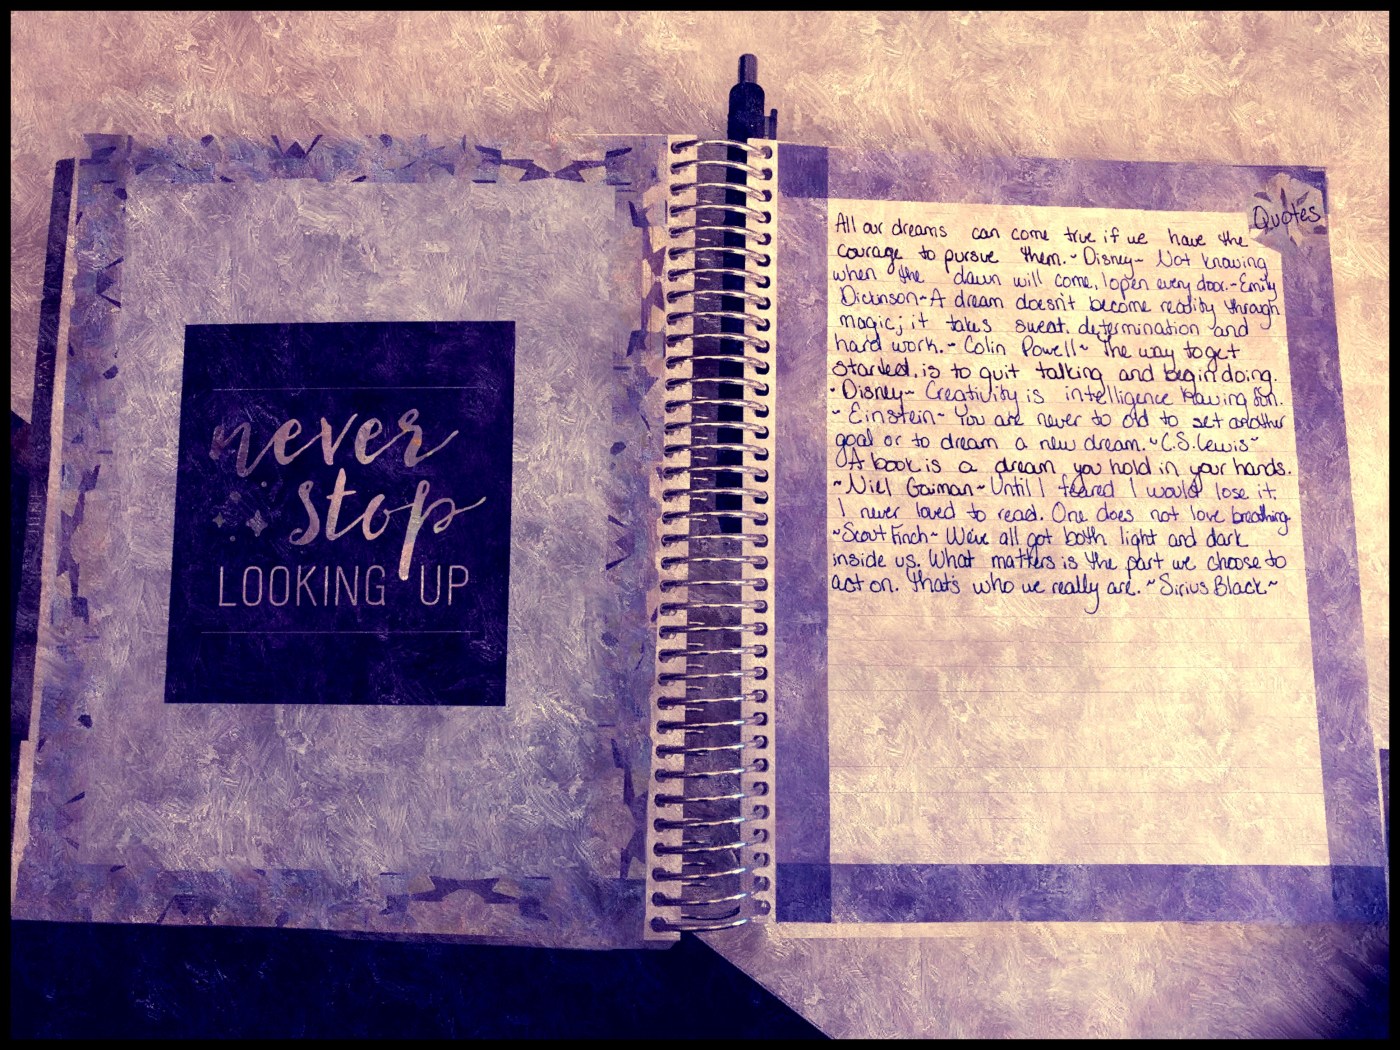 never
stop
LOOKING UP
Quotes
All our dreams can come true if we have the
courage to pursue them. ~ Disney ~ Not knowing
when the dawn will come, I open every door. ~ Emily
Dickinson ~ A dream doesn't become reality through
magic; it takes sweat, determination and
hard work. ~ Colin Powell ~ The way to get
started is to quit talking and begin doing.
~ Disney ~ Creativity is intelligence having fun.
~ Einstein ~ You are never to old to set another
goal or to dream a new dream. ~ C.S. Lewis ~
A book is a dream you hold in your hands.
~ Niel Gaiman ~ Until I feared I would lose it,
I never loved to read. One does not love breathing
~ Scout Finch ~ We've all got both light and dark
inside us. What matters is the part we choose to
act on. That's who we really are. ~ Sirius Black ~